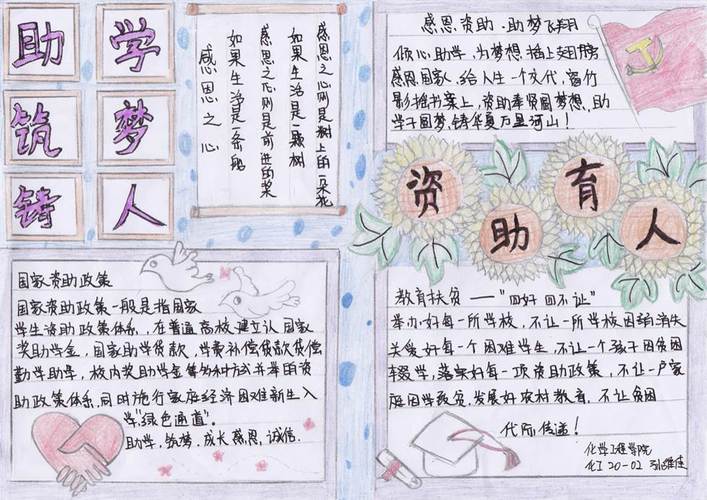 助学
筑梦
铸人
感恩之心
如果生活是一条船
感恩之心则是前进的桨
如果生活是一颗树
感恩之心则是树上的一朵花
感恩资助·助梦飞翔
倾心助学,为梦想插上翅膀
感恩国家,给人生一个交代,窗竹
影摇书案上,资助奉贤圆梦想,助
学子圆梦,铸华夏万里河山!
资助育人
国家资助政策
国家资助政策一般是指国家
学生资助政策体系,在普通高校建立认国家
奖助学金,国家助学贷款,学费补偿贷款贷偿
勤学助学,校内奖助学金等多种方式并举的资
助政策体系,同时施行家庭经济困难新生入
学“绿色通道”。
助学,筑梦.成长感恩,诚信.
教育扶贫——“四好四不让”
举办好每一所学校,不让一所学校因弱消失
关爱好每一个困难学生,不让一个孩子因贫困
辍学,落实好每一项资助政策,不让一户家
庭因学致贫,发展好农村教育,不让贫困
代际传递!
化学工程学院
化工20-02